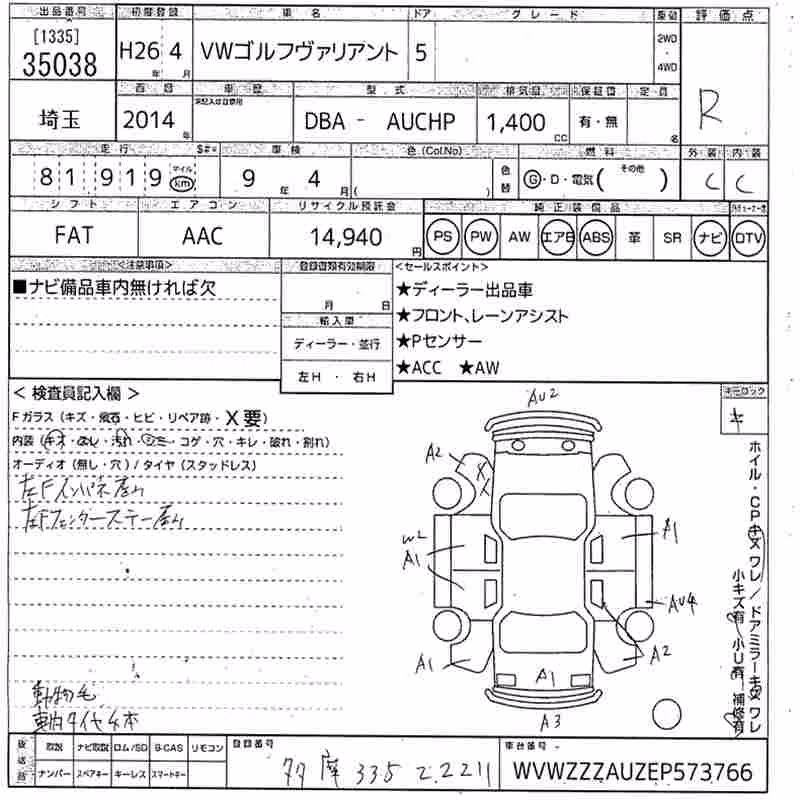 出品番号 初度登録 車名 ドア グレード 駆動 評価点
[1335]
35038
H26 年 4 月
VWゴルフヴァリアント
5
2WD
・
4WD
R
埼玉
2014 年
車歴
型式
DBA - AUCHP
排気量
1,400 CC
保証書
有・無
定員
名
走行
81919
マイル
km
車検
9 年 4 月
色(Col.No)
( )
色替
燃料
G・D・電気( その他 )
外装 内装
C C
シフト エアコン リサイクル預託金 純正装備品
FAT AAC 14,940 円
PS PW AW エアB ABS 革 SR ナビ DTV
<注意事項>
■ナビ備品車内無ければ欠
登録書類有効期限
月 日
輸入車
ディーラー・並行
左H・右H
<セールスポイント>
★ディーラー出品車
★フロント、レーンアシスト
★Pセンサー
★ACC ★AW
<検査員記入欄>
Fガラス(キズ・飛石・ヒビ・リペア跡・X要)
内装(キズ・汚れ・シミ・コゲ・穴・キレ・破れ・割れ)
オーディオ(無し・穴)/タイヤ(スタッドレス)
左Fインパネ曲り
左Fフェンダーステー曲り
動物毛
車内タイヤ4本
キーロック
キ
AU2
A2
X
W2
A1
A1
AU4
A1
A1
A2
A3
ホイル・CPキズワレ/ドアミラーキズワレ
小キズ有 小U有 補修有
後送品
取説 ナビ取説 ロム/SD B-CAS リモコン
ナンバー スペアキー キーレス スマートキー
登録番号
335 2211
車台番号
WVWZZZAUZEP573766